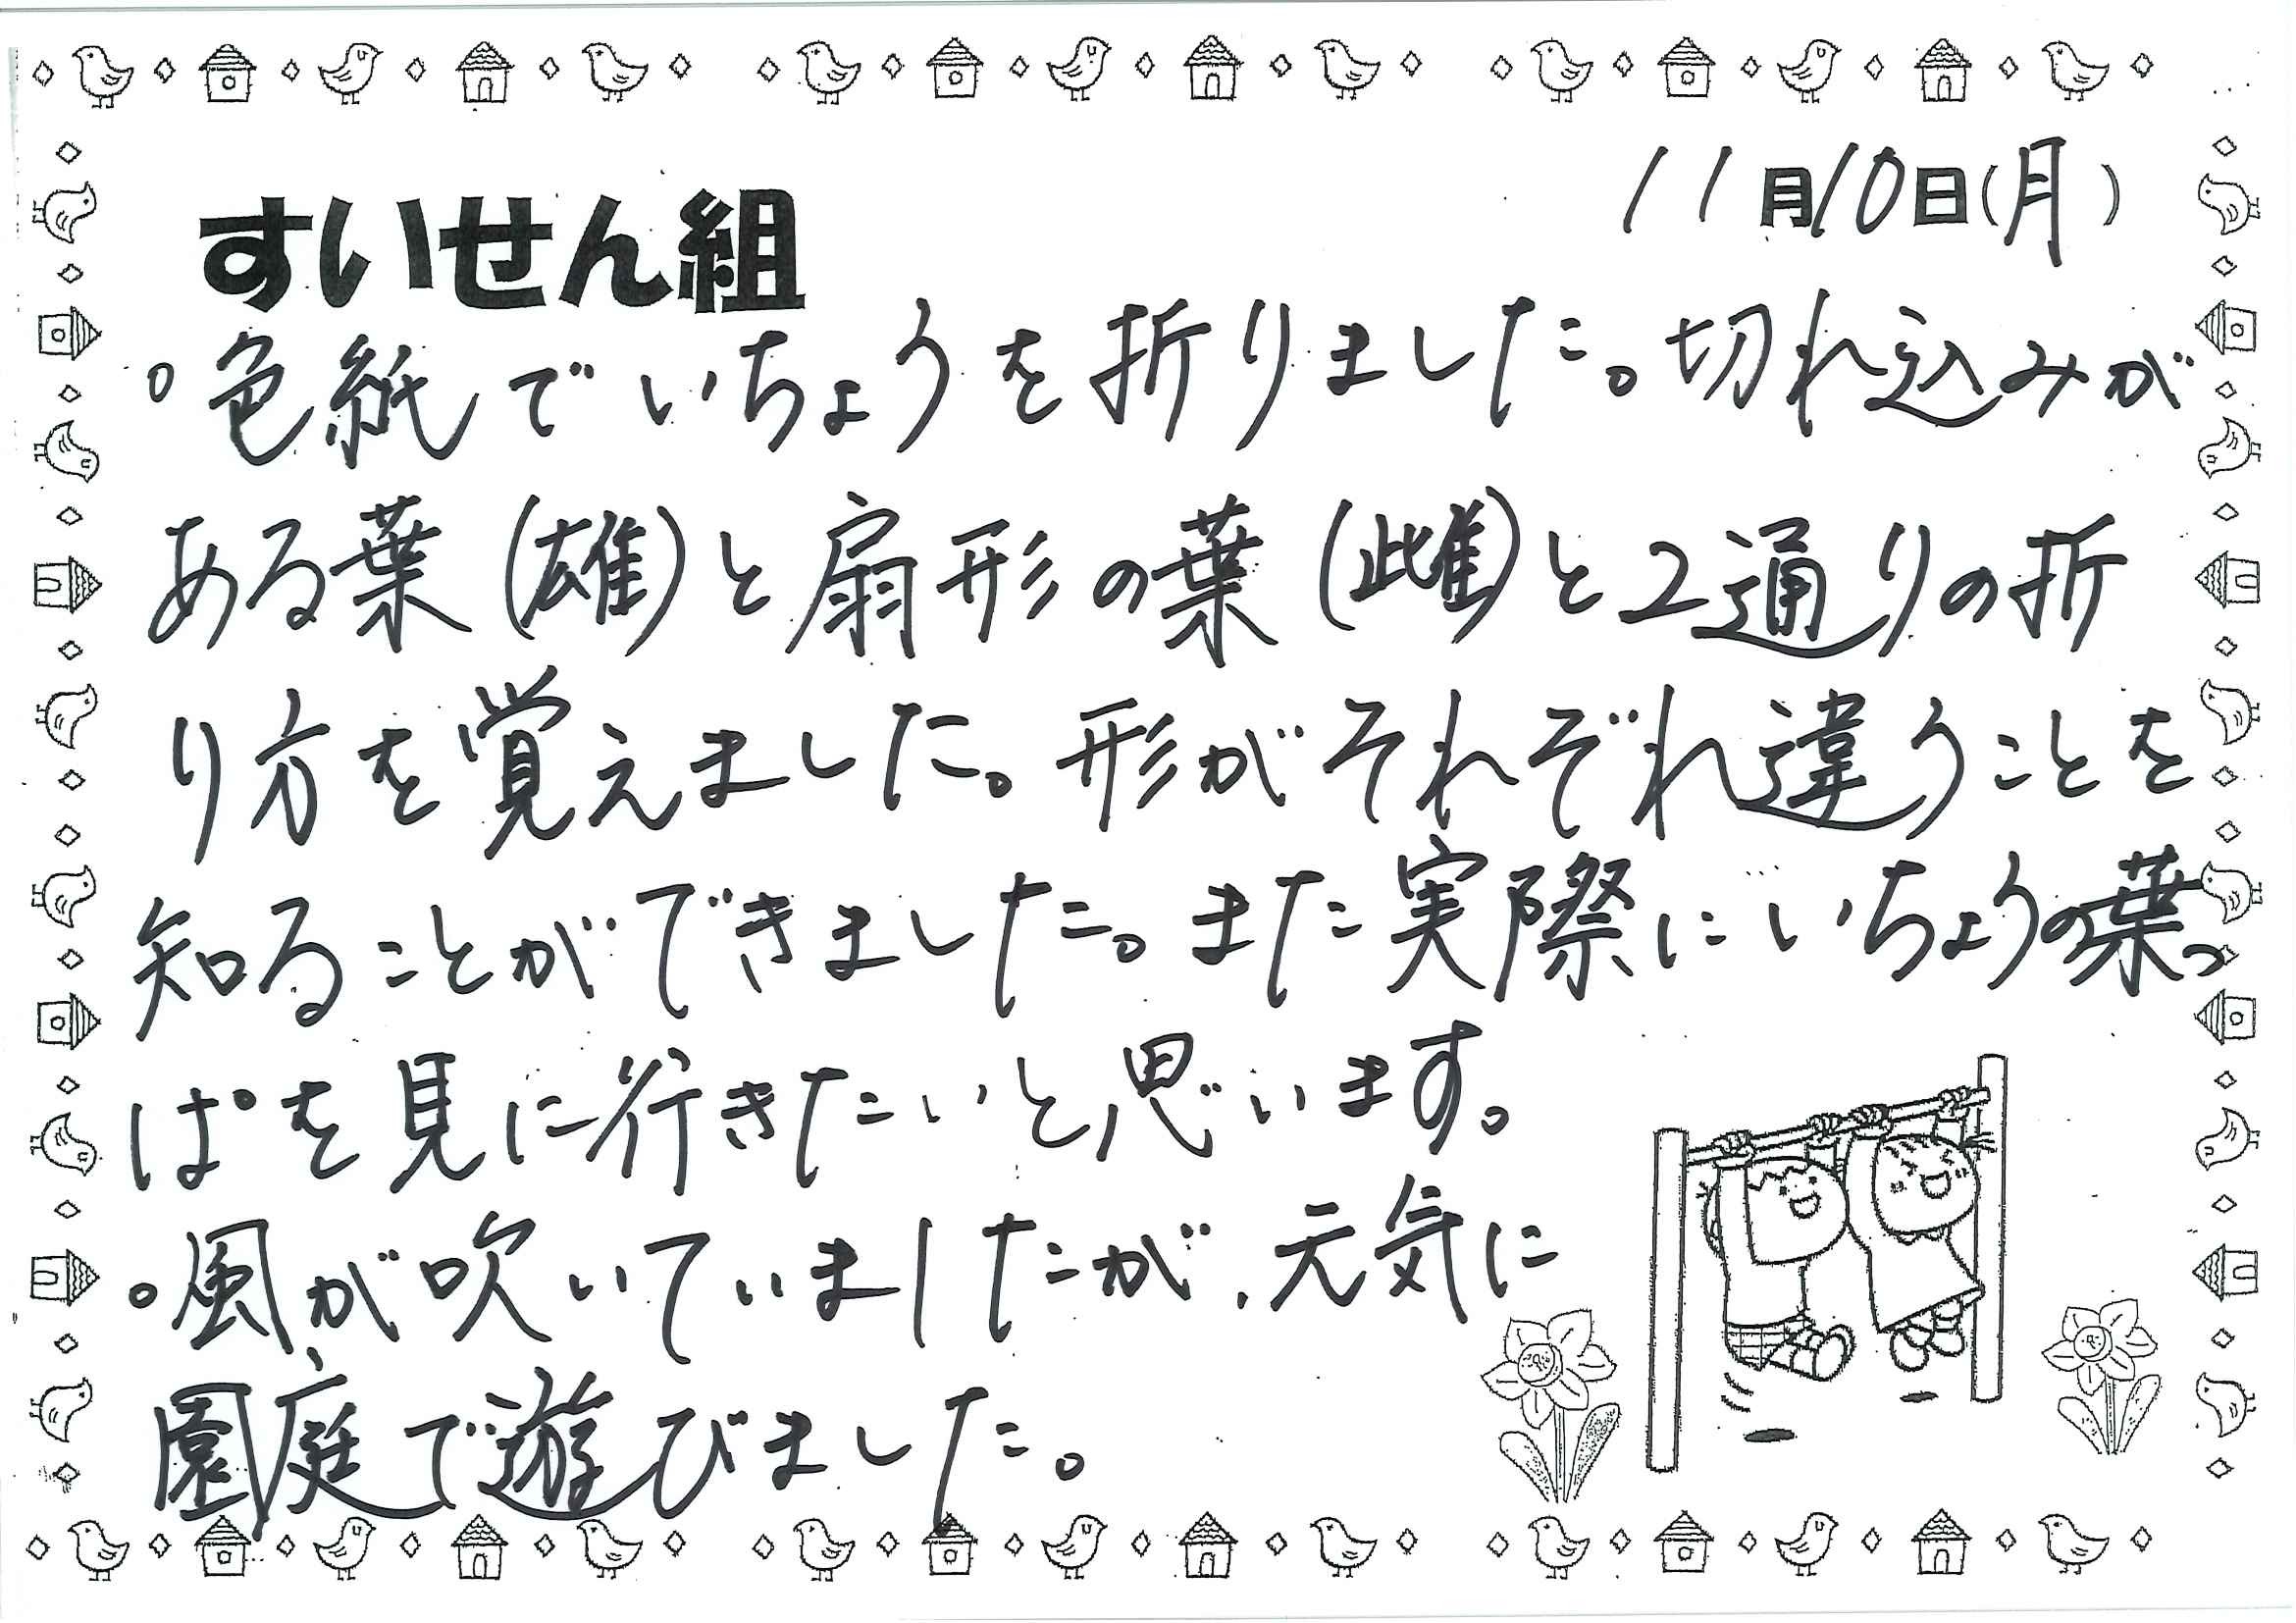 11月10日(月)
すいせん組
○色紙でいちょうを折りました。切れ込みが
ある葉(雄)と扇形の葉(雌)と2通りの折
り方を覚えました。形がそれぞれ違うことを
知ることができました。また実際にいちょうの葉っ
ぱを見に行きたいと思います。
○風が吹いていましたが、元気に
園庭で遊びました。